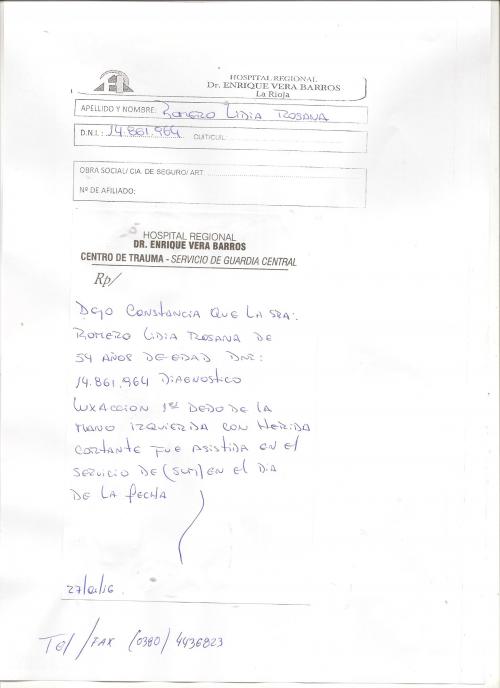 HOSPITAL REGIONAL
Dr. ENRIQUE VERA BARROS
La Rioja
APELLIDO Y NOMBRE: ROMERO LIDIA ROSANA
D.N.I.: 14.861.964 CUIT/CUIL:
OBRA SOCIAL/ CIA. DE SEGURO/ ART
Nº DE AFILIADO:
HOSPITAL REGIONAL
DR. ENRIQUE VERA BARROS
CENTRO DE TRAUMA - SERVICIO DE GUARDIA CENTRAL
Rp/
DEJO CONSTANCIA QUE LA SRA:
ROMERO LIDIA ROSANA DE
54 AÑOS DE EDAD DNI:
14.861.964 DIAGNOSTICO
LUXACCION 1er DEDO DE LA
MANO IZQUIERDA CON HERIDA
CORTANTE FUE ASISTIDA EN EL
SERVICIO DE (SUM) EN EL DIA
DE LA FECHA
Tel/FAX (0380) 4436823